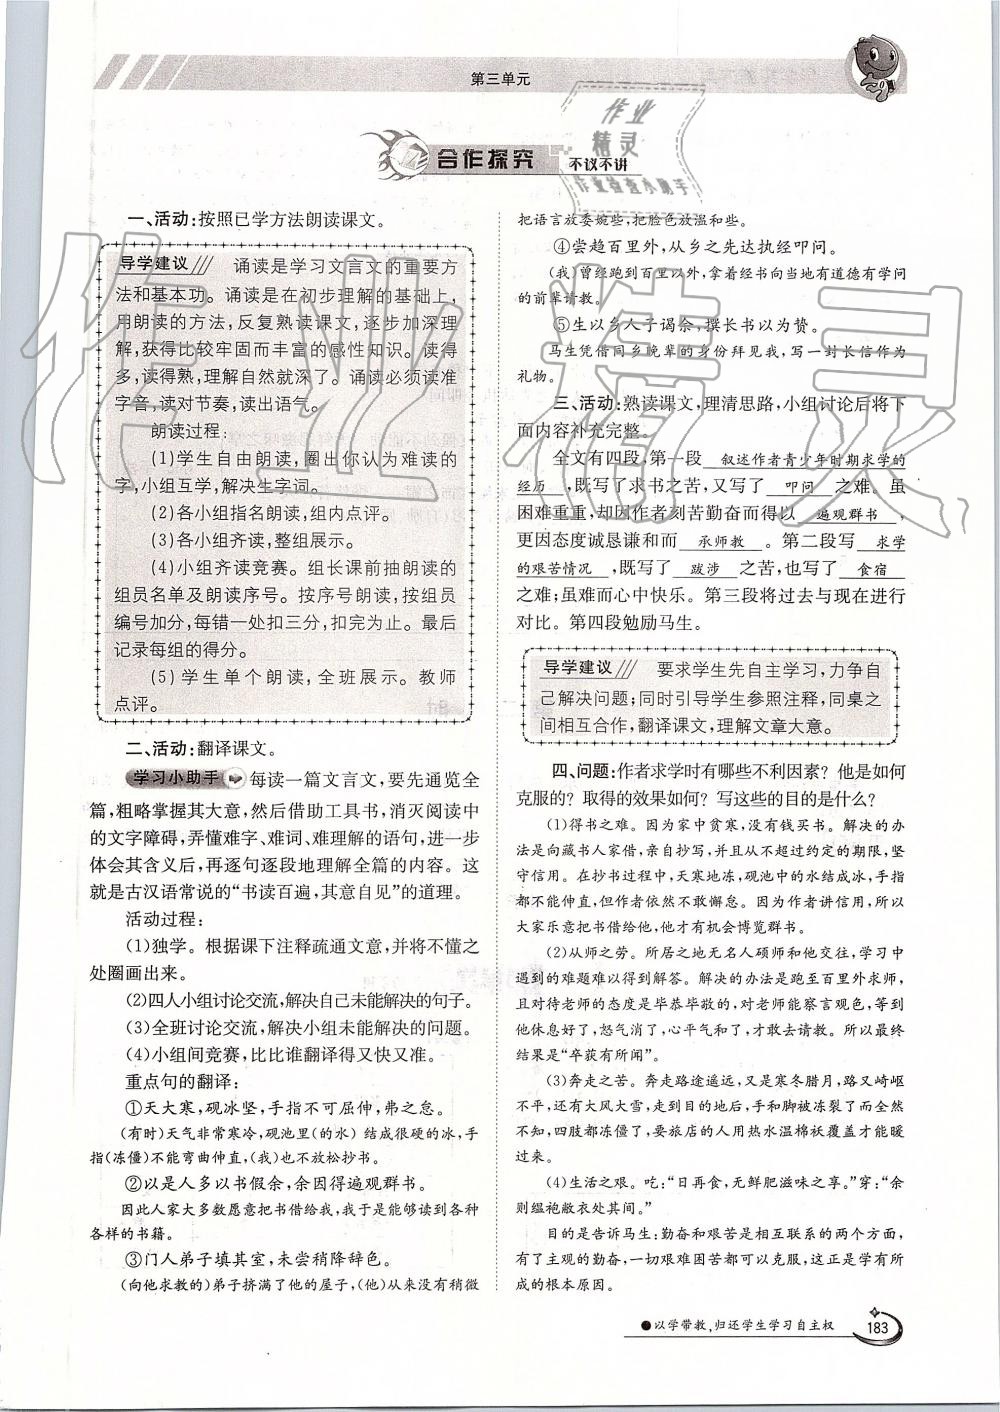 第三单元
合作探究 不议不讲
作业
精灵
作业检查小助手
一、活动:按照已学方法朗读课文。
导学建议 诵读是学习文言文的重要方
法和基本功。诵读是在初步理解的基础上,
用朗读的方法,反复熟读课文,逐步加深理
解,获得比较牢固而丰富的感性知识。读得
多,读得熟,理解自然就深了。诵读必须读准
字音,读对节奏,读出语气。
朗读过程:
(1)学生自由朗读,圈出你认为难读的
字,小组互学,解决生字词。
(2)各小组指名朗读,组内点评。
(3)各小组齐读,整组展示。
(4)小组齐读竞赛。组长课前抽朗读的
组员名单及朗读序号。按序号朗读,按组员
编号加分,每错一处扣三分,扣完为止。最后
记录每组的得分。
(5)学生单个朗读,全班展示。教师
点评。
二、活动:翻译课文。
学习小助手 每读一篇文言文,要先通览全
篇,粗略掌握其大意,然后借助工具书,消灭阅读中
的文字障碍,弄懂难字、难词、难理解的语句,进一步
体会其含义后,再逐句逐段地理解全篇的内容。这
就是古汉语常说的“书读百遍,其意自见”的道理。
活动过程:
(1)独学。根据课下注释疏通文意,并将不懂之
处圈画出来。
(2)四人小组讨论交流,解决自己未能解决的句子。
(3)全班讨论交流,解决小组未能解决的问题。
(4)小组间竞赛,比比谁翻译得又快又准。
重点句的翻译:
①天大寒,砚冰坚,手指不可屈伸,弗之怠。
(有时)天气非常寒冷,砚池里(的水)结成很硬的冰,手
指(冻僵)不能弯曲伸直,(我)也不放松抄书。
②以是人多以书假余,余因得遍观群书。
因此人家大多数愿意把书借给我,我于是能够读到各种
各样的书籍。
③门人弟子填其室,未尝稍降辞色。
(向他求教的)弟子挤满了他的屋子,(他)从来没有稍微
把语言放委婉些,把脸色放温和些。
④尝趋百里外,从乡之先达执经叩问。
(我)曾经跑到百里以外,拿着经书向当地有道德有学问
的前辈请教。
⑤生以乡人子谒余,撰长书以为贽。
马生凭借同乡晚辈的身份拜见我,写一封长信作为
礼物。
三、活动:熟读课文,理清思路,小组讨论后将下
面内容补充完整:
全文有四段,第一段 叙述作者青少年时期求学的
经历 ,既写了求书之苦,又写了 叩问 之难。虽
困难重重,却因作者刻苦勤奋而得以 遍观群书 ,
更因态度诚恳谦和而 承师教 。第二段写 求学
的艰苦情况 ,既写了 跋涉 之苦,也写了 食宿
之难;虽难而心中快乐。第三段将过去与现在进行
对比。第四段勉励马生。
导学建议 要求学生先自主学习,力争自
己解决问题;同时引导学生参照注释,同桌之
间相互合作,翻译课文,理解文章大意。
四、问题:作者求学时有哪些不利因素?他是如何
克服的?取得的效果如何?写这些的目的是什么?
(1)得书之难。因为家中贫寒,没有钱买书。解决的办
法是向藏书人家借,亲自抄写,并且从不超过约定的期限,坚
守信用。在抄书过程中,天寒地冻,砚池中的水结成冰,手指
都不能伸直,但作者依然不敢懈怠。因为作者讲信用,所以
大家乐意把书借给他,他才有机会博览群书。
(2)从师之劳。所居之地无名人硕师和他交往,学习中
遇到的难题难以得到解答。解决的办法是跑至百里外求师,
且对待老师的态度是毕恭毕敬的,对老师能察言观色,等到
他休息好了,怒气消了,心平气和了,才敢去请教。所以最终
结果是“卒获有所闻”。
(3)奔走之苦。奔走路途遥远,又是寒冬腊月,路又崎岖
不平,还有大风大雪,走到目的地后,手和脚被冻裂了全然
不知,四肢都冻僵了,要旅店的人用热水温棉袄覆盖才能暖
过来。
(4)生活之艰。吃:“日再食,无鲜肥滋味之享。”穿:“余
则缊袍敝衣处其间。”
目的是告诉马生:勤奋和艰苦是相互联系的两个方面,
有了主观的勤奋,一切艰难困苦都可以克服,这是学有所
成的根本原因。
●以学带教,归还学生学习自主权
183
作业精灵